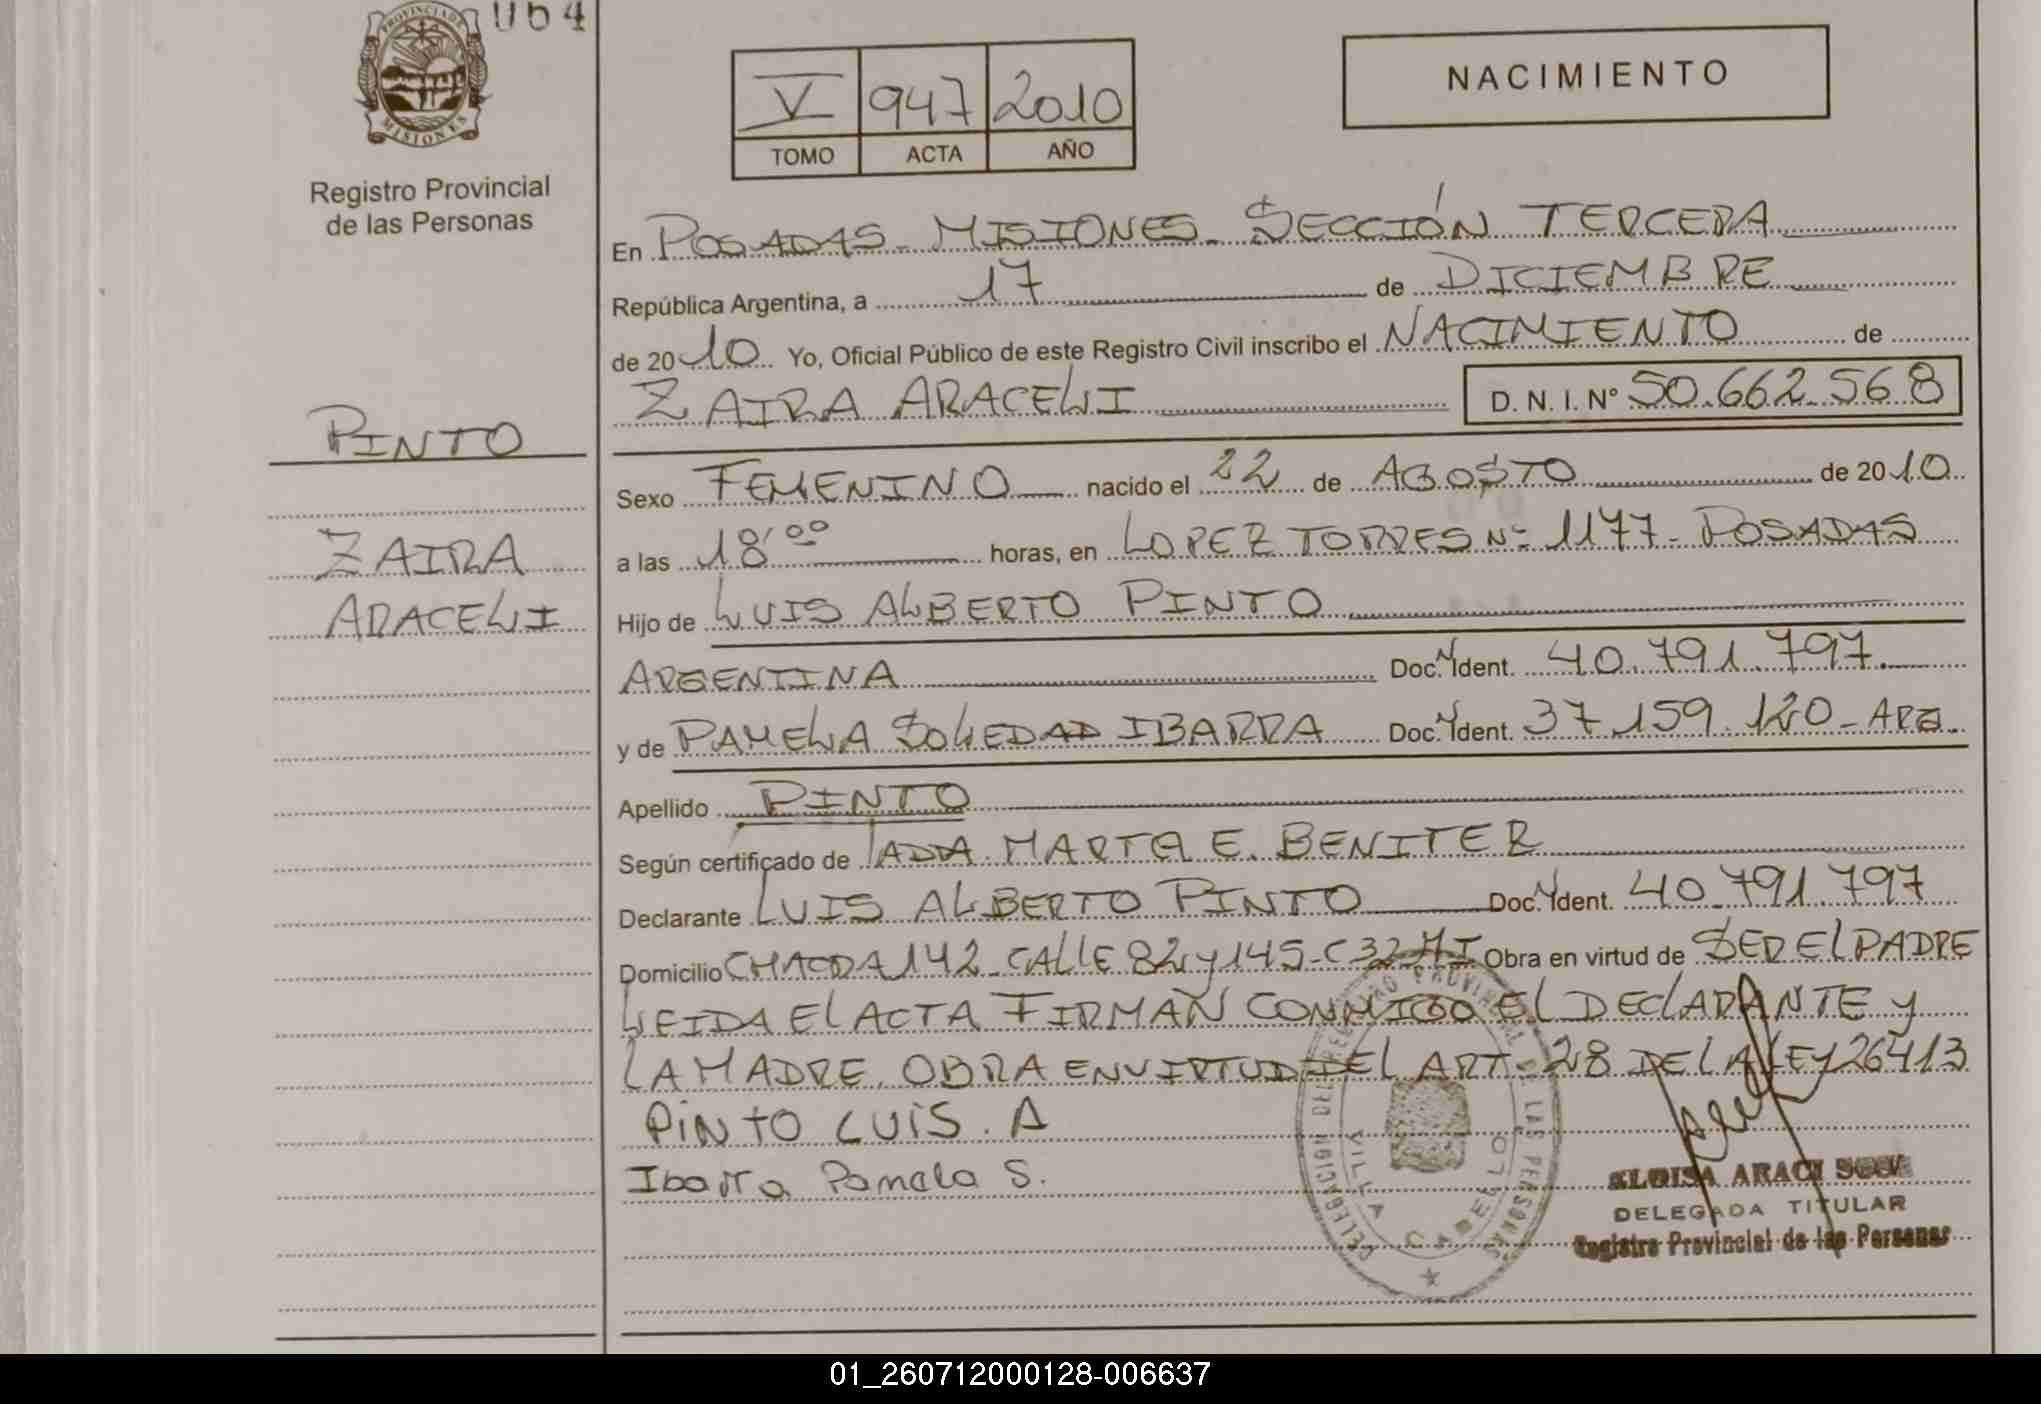 064
PROVINCIA DE
MISIONES
Registro Provincial
de las Personas
V 947 2010
TOMO ACTA AÑO
NACIMIENTO
En POSADAS - MISIONES - SECCIÓN TERCERA
República Argentina, a 17 de DICIEMBRE
de 2010 Yo, Oficial Público de este Registro Civil inscribo el NACIMIENTO de
ZAIRA ARACELI D. N. I. Nº 50.662.568
PINTO
ZAIRA
ARACELI
Sexo FEMENINO nacido el 22 de AGOSTO de 2010
a las 18'00 horas, en LOPEZ TORRES Nº 1177 - POSADAS
Hijo de LUIS ALBERTO PINTO
ARGENTINA Doc. Ident. 40.791.797
y de PAMELA SOLEDAD IBARRA Doc. Ident. 37.159.120 - ARG.
Apellido PINTO
Según certificado de MARTA E. BENITEZ
Declarante LUIS ALBERTO PINTO Doc. Ident. 40.791.797
Domicilio CHACRA 142 - CALLE 82 y 145 - C 32 MI Obra en virtud de SER EL PADRE
LEIDA EL ACTA FIRMAN CONMIGO EL DECLARANTE y
LA MADRE. OBRA EN VIRTUD DEL ART. 28 DE LA LEY 26413
PINTO LUIS. A
Ibarra Pamela S.
DELEGACION DEL REGISTRO PROVINCIAL DE LAS PERSONAS
VILLA CABELLO
ELOISA ARACI
DELEGADA TITULAR
Registro Provincial de las Personas
01_260712000128-006637